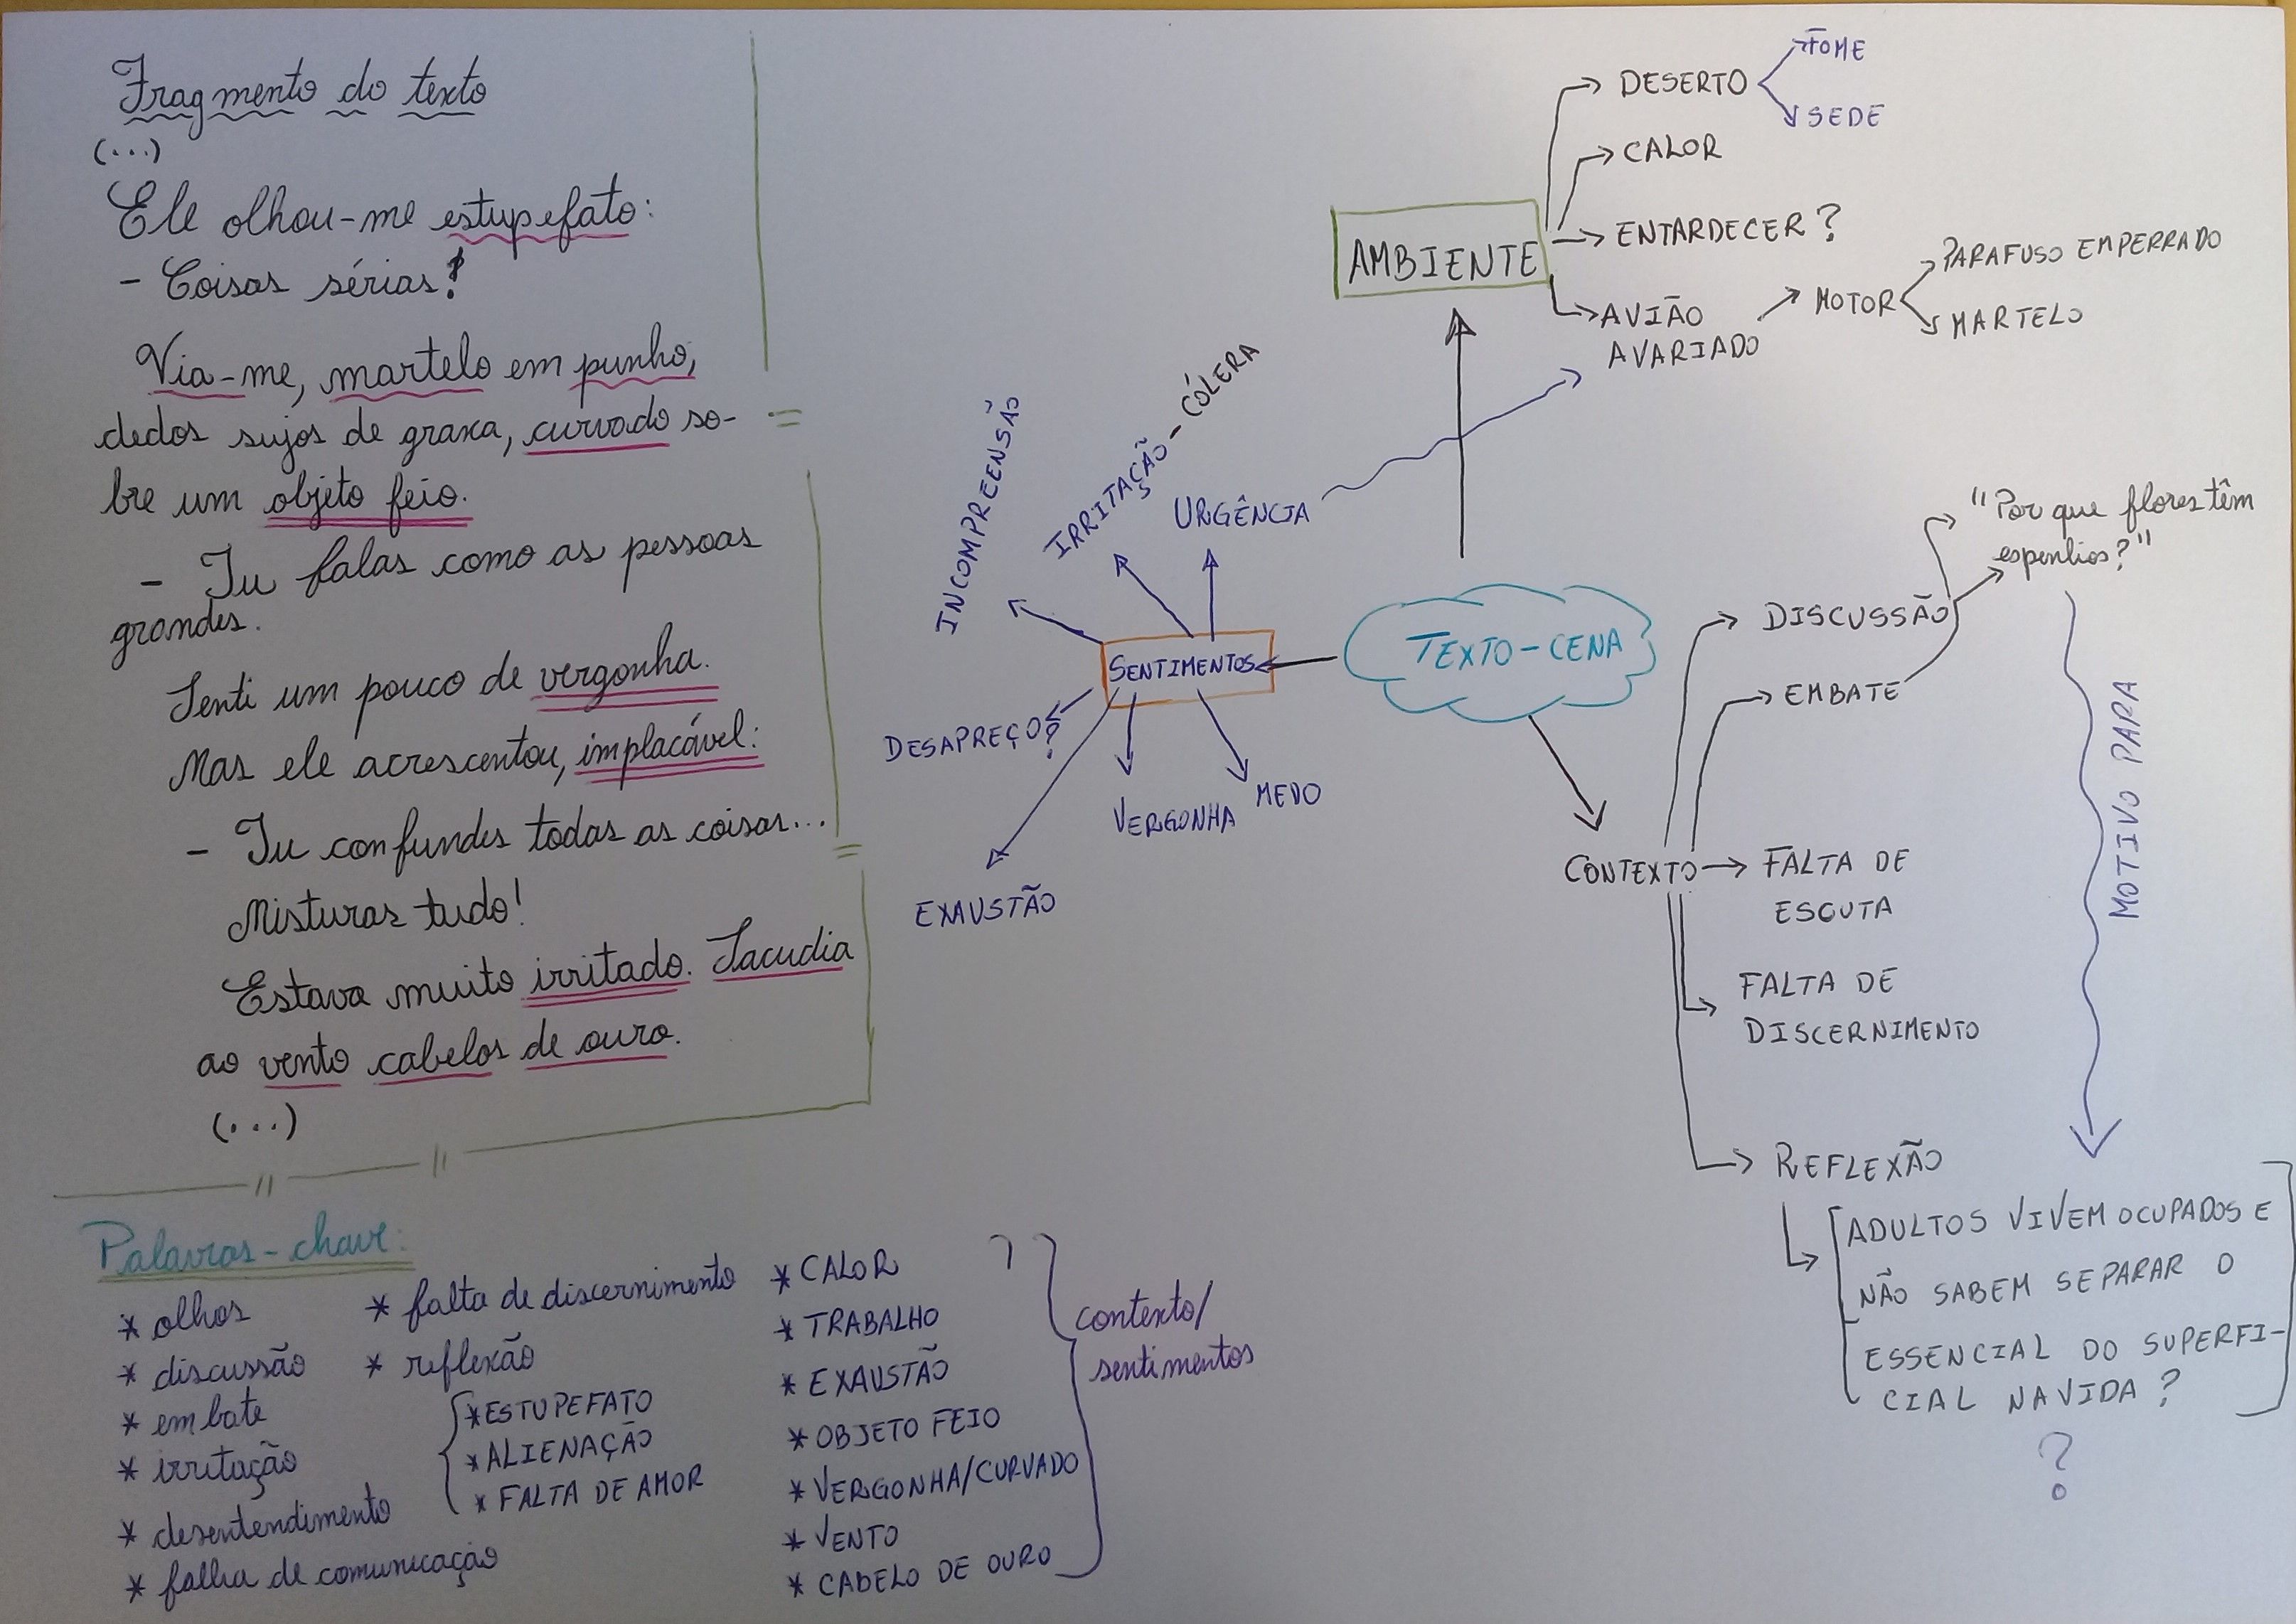 Fragmento do texto
(...)
Ele olhou-me estupefato:
- Coisas sérias!
Via-me, martelo em punho,
dedos sujos de graxa, curvado so-
bre um objeto feio.
- Tu falas como as pessoas
grandes.
Senti um pouco de vergonha.
Mas ele acrescentou, implacável:
- Tu confundes todas as coisas...
Misturas tudo!
Estava muito irritado. Sacudia
ao vento cabelos de ouro.
(...)
Palavras-chave:
* olhos
* discussão
* embate
* irritação
* desentendimento
* falha de comunicação
* falta de discernimento
* reflexão
* ESTUPEFATO
* ALIENAÇÃO
* FALTA DE AMOR
* CALOR
* TRABALHO
* EXAUSTÃO
* OBJETO FEIO
* VERGONHA/CURVADO
* VENTO
* CABELO DE OURO
?
contexto/
sentimentos
TEXTO-CENA
AMBIENTE
DESERTO
FOME
SEDE
CALOR
ENTARDECER?
AVIÃO
AVARIADO
MOTOR
PARAFUSO EMPERRADO
MARTELO
SENTIMENTOS
INCOMPREENSÃO
IRRITAÇÃO-CÓLERA
URGÊNCIA
DESAPREÇO?
EXAUSTÃO
VERGONHA
MEDO
CONTEXTO
DISCUSSÃO
EMBATE
"Por que flores têm
espinhos?"
MOTIVO PARA
FALTA DE
ESCUTA
FALTA DE
DISCERNIMENTO
REFLEXÃO
ADULTOS VIVEM OCUPADOS E
NÃO SABEM SEPARAR O
ESSENCIAL DO SUPERFI-
CIAL NA VIDA?
?